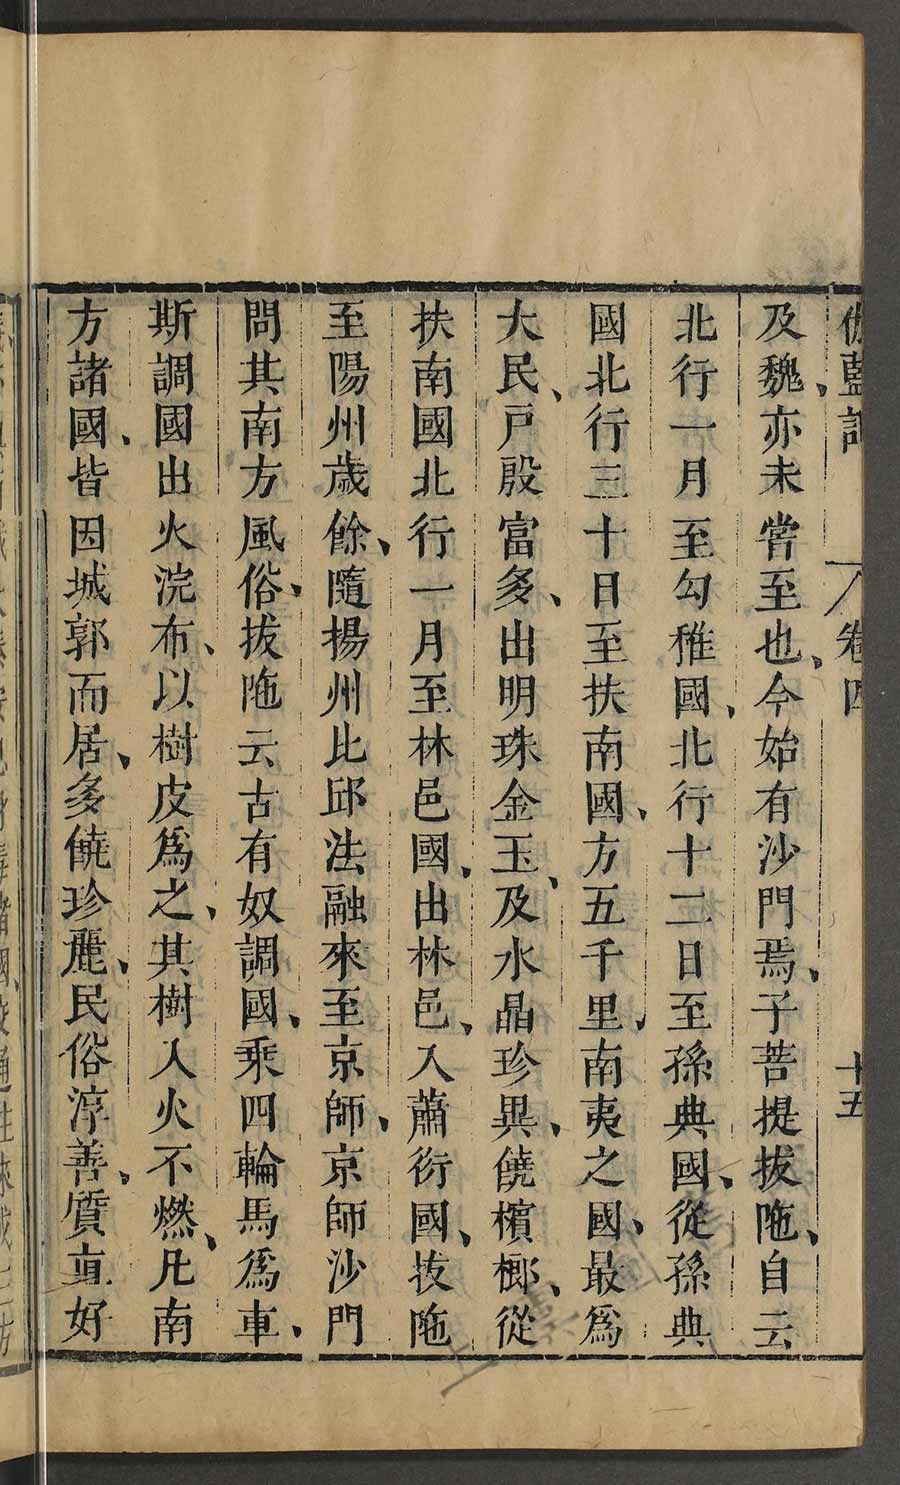 伽藍記 卷四 十五
及魏、亦未甞至也、今始有沙門焉、子菩提拔陁、自云
北行一月至勾稚國、北行十二日至孫典國、從孫典
國北行三十日至扶南國、方五千里、南夷之國、最爲
大民、戸殷富多、出明珠金玉、及水晶珍異、饒檳榔、從
扶南國北行一月至林邑國、出林邑、入蕭衍國、拔陁
至陽州歲餘、隨揚州比邱法融來至京師、京師沙門
問其南方風俗、拔陁云古有奴調國、乘四輪馬爲車、
斯調國出火浣布、以樹皮爲之、其樹入火不燃、凡南
方諸國、皆因城郭而居、多饒珍麗、民俗淳善、質直好